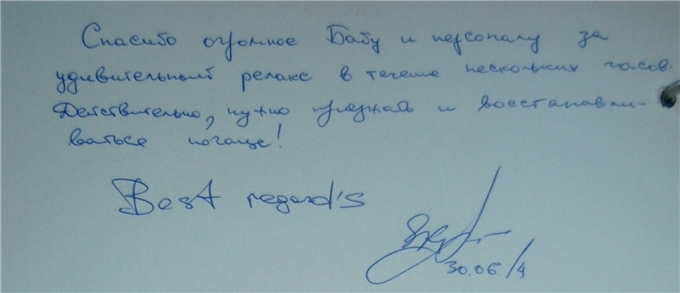 Спасибо огромное Бабу и персоналу за
удивительный релакс в течение нескольких часов.
Действительно, нужно уезжать и восстанавли-
ваться почаще!
Best regard's
30.06/4